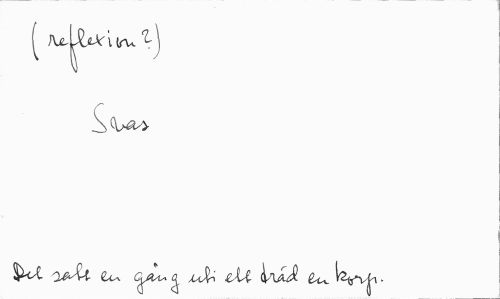 (reflexion?)
Svas
Det satt en gång uti ett träd en korp.